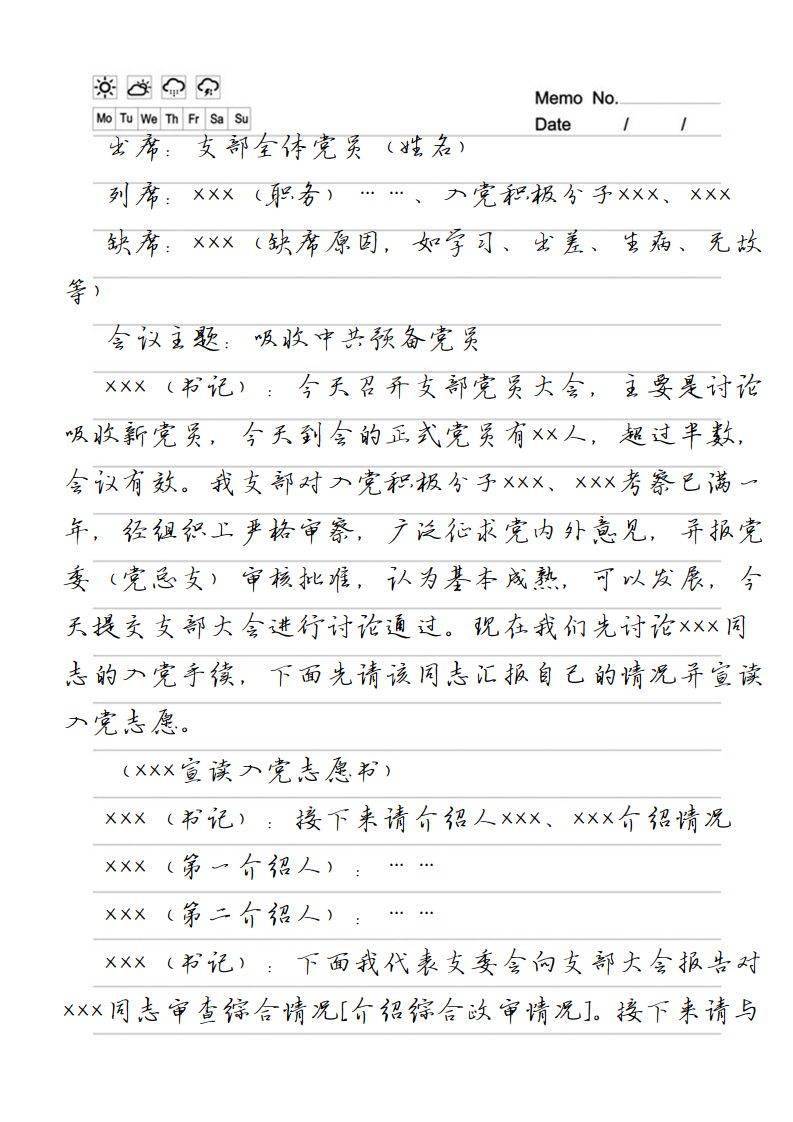 Memo No.
Mo Tu We Th Fr Sa Su
Date / /
出席：支部全体党员（姓名）
列席：×××（职务）……、入党积极分子×××、×××
缺席：×××（缺席原因，如学习、出差、生病、无故
等）
会议主题：吸收中共预备党员
×××（书记）：今天召开支部党员大会，主要是讨论
吸收新党员，今天到会的正式党员有××人，超过半数，
会议有效。我支部对入党积极分子×××、×××考察已满一
年，经组织上严格审察，广泛征求党内外意见，并报党
委（党总支）审核批准，认为基本成熟，可以发展，今
天提交支部大会进行讨论通过。现在我们先讨论×××同
志的入党手续，下面先请该同志汇报自己的情况并宣读
入党志愿。
（×××宣读入党志愿书）
×××（书记）：接下来请介绍人×××、×××介绍情况
×××（第一介绍人）：……
×××（第二介绍人）：……
×××（书记）：下面我代表支委会向支部大会报告对
×××同志审查综合情况[介绍综合政审情况]。接下来请与